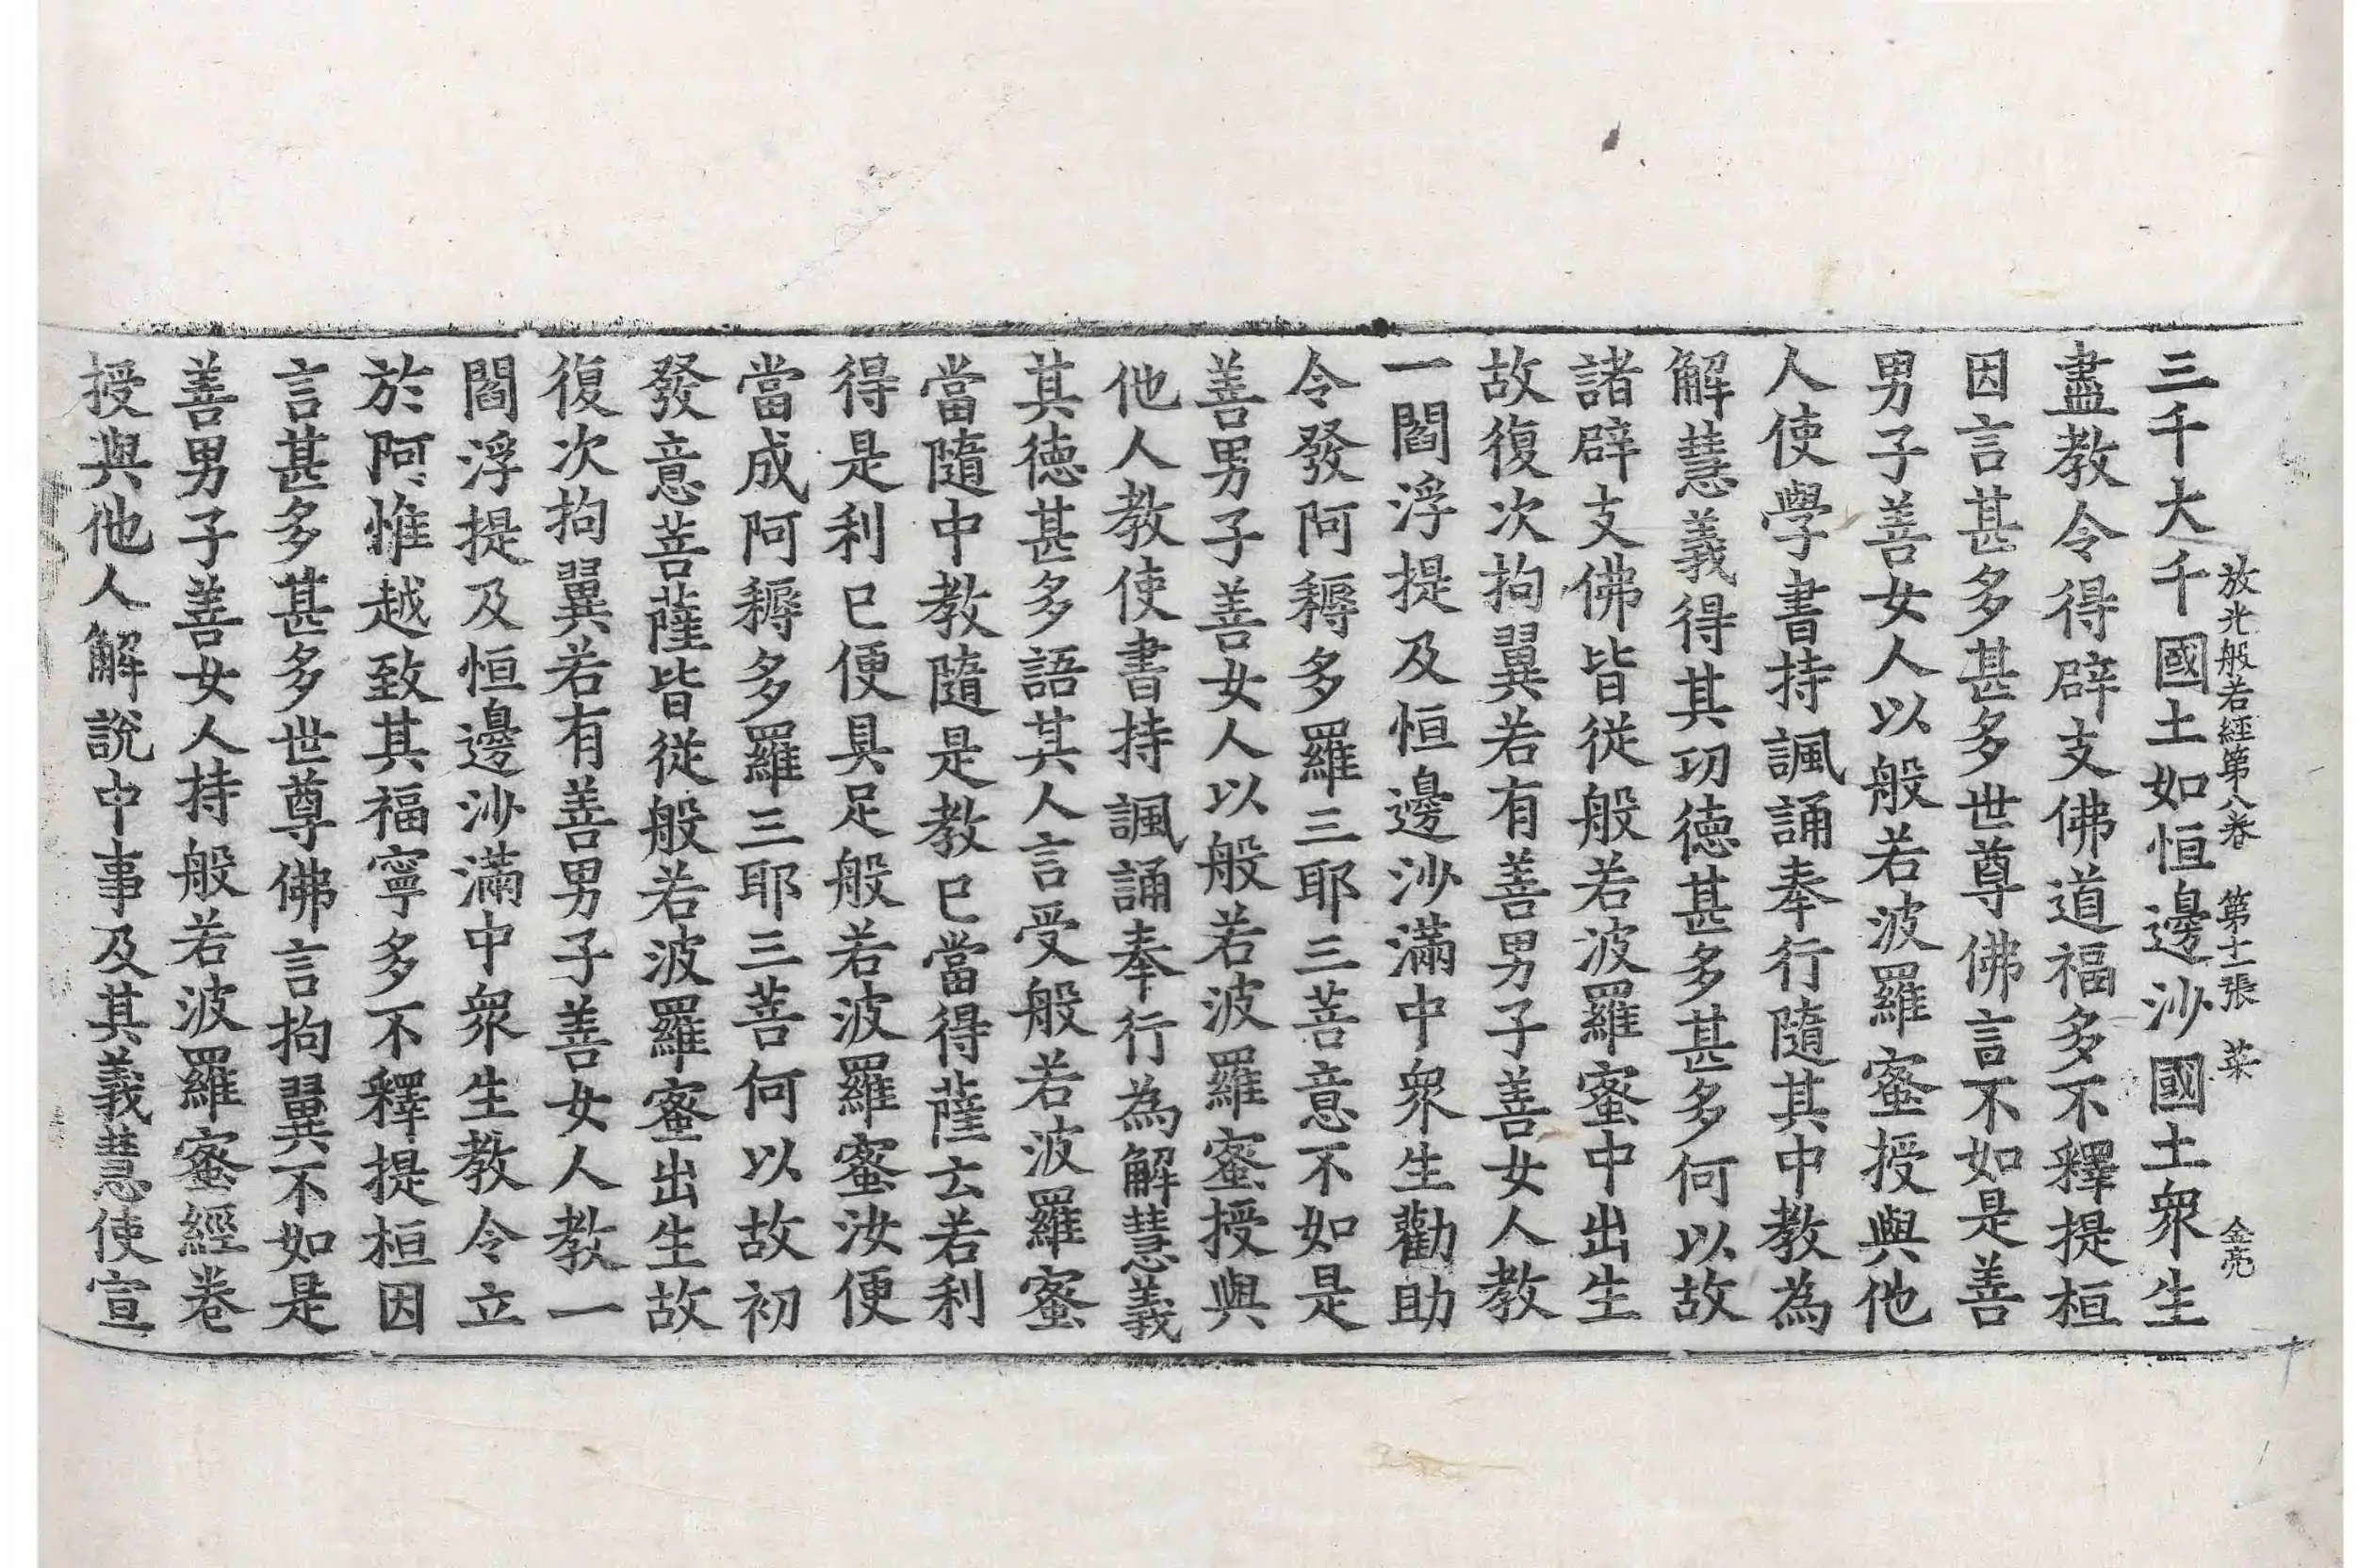 放光般若經第八卷 第十二張 菜 金亮
三千大千國土如恒邊沙國土衆生
盡教令得辟支佛道福多不釋提桓
因言甚多甚多世尊佛言不如是善
男子善女人以般若波羅蜜授與他
人使學書持諷誦奉行隨其中教為
解慧義得其功德甚多甚多何以故
諸辟支佛皆從般若波羅蜜中出生
故復次拘翼若有善男子善女人教
一閻浮提及恒邊沙滿中衆生勸助
令發阿耨多羅三耶三菩意不如是
善男子善女人以般若波羅蜜授與
他人教使書持諷誦奉行為解慧義
其德甚多語其人言受般若波羅蜜
當隨中教隨是教已當得薩云若利
得是利已便具足般若波羅蜜汝便
當成阿耨多羅三耶三菩何以故初
發意菩薩皆從般若波羅蜜出生故
復次拘翼若有善男子善女人教一
閻浮提及恒邊沙滿中衆生教令立
於阿惟越致其福寧多不釋提桓因
言甚多甚多世尊佛言拘翼不如是
善男子善女人持般若波羅蜜經卷
授與他人解說中事及其義慧使宣